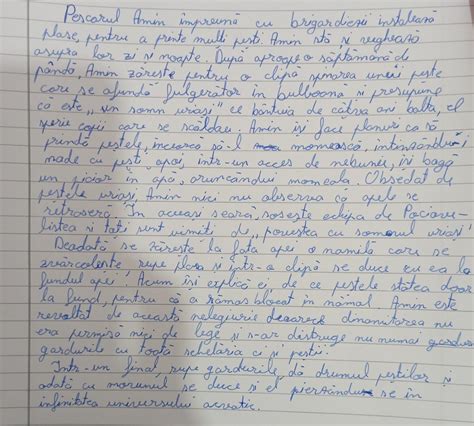 Pescarul Amin împreună cu brigardienii instalează
plase, pentru a printe multi pesti. Amin stă și veghează
asupra lor zi și noapte. După aproape o săptămână de
pândă, Amin zărește pentru o clipă spinarea unei pește
care se afundă fulgerător în bulboană și presupune
că este „un somn uriaș" ce bântuia de câțiva ani balta, el
sperie copii care se scăldau. Amin își face planuri ca să
prindă peștele, încearcă să-l momească, intinzându-i
made cu pești apoi într-un acces de nebunie, își bagă
un picior în apă, aruncându-i momeala. Obsedat de
peștele uriaș Amin nici nu observa că apele se
retraseră. În aceeasi seară, sosește echipa de
și toti sunt uimiti de „povestea cu somonul uriaș!
Deadată se zărește la fata apei o namilă care se
zvârcolește, rupe plasa și într-o clipă se duce cu ea la
fundul apei. Acum își explică ei, de ce peștele statea doar
la fund, pentru că a rămas blocat în nămol. Amin este
revoltat de această nelegiuire deoarece dinamitarea nu
era permisă nici de lege și s-ar distruge nu numai gardus
gardurile cu toată schelaria ci și pestii.
Intr-un final, rupe gardurile, dă drumul peștilor și
odată cu morunul se duce și el pierzându-se în
infinitea universului acvatic.